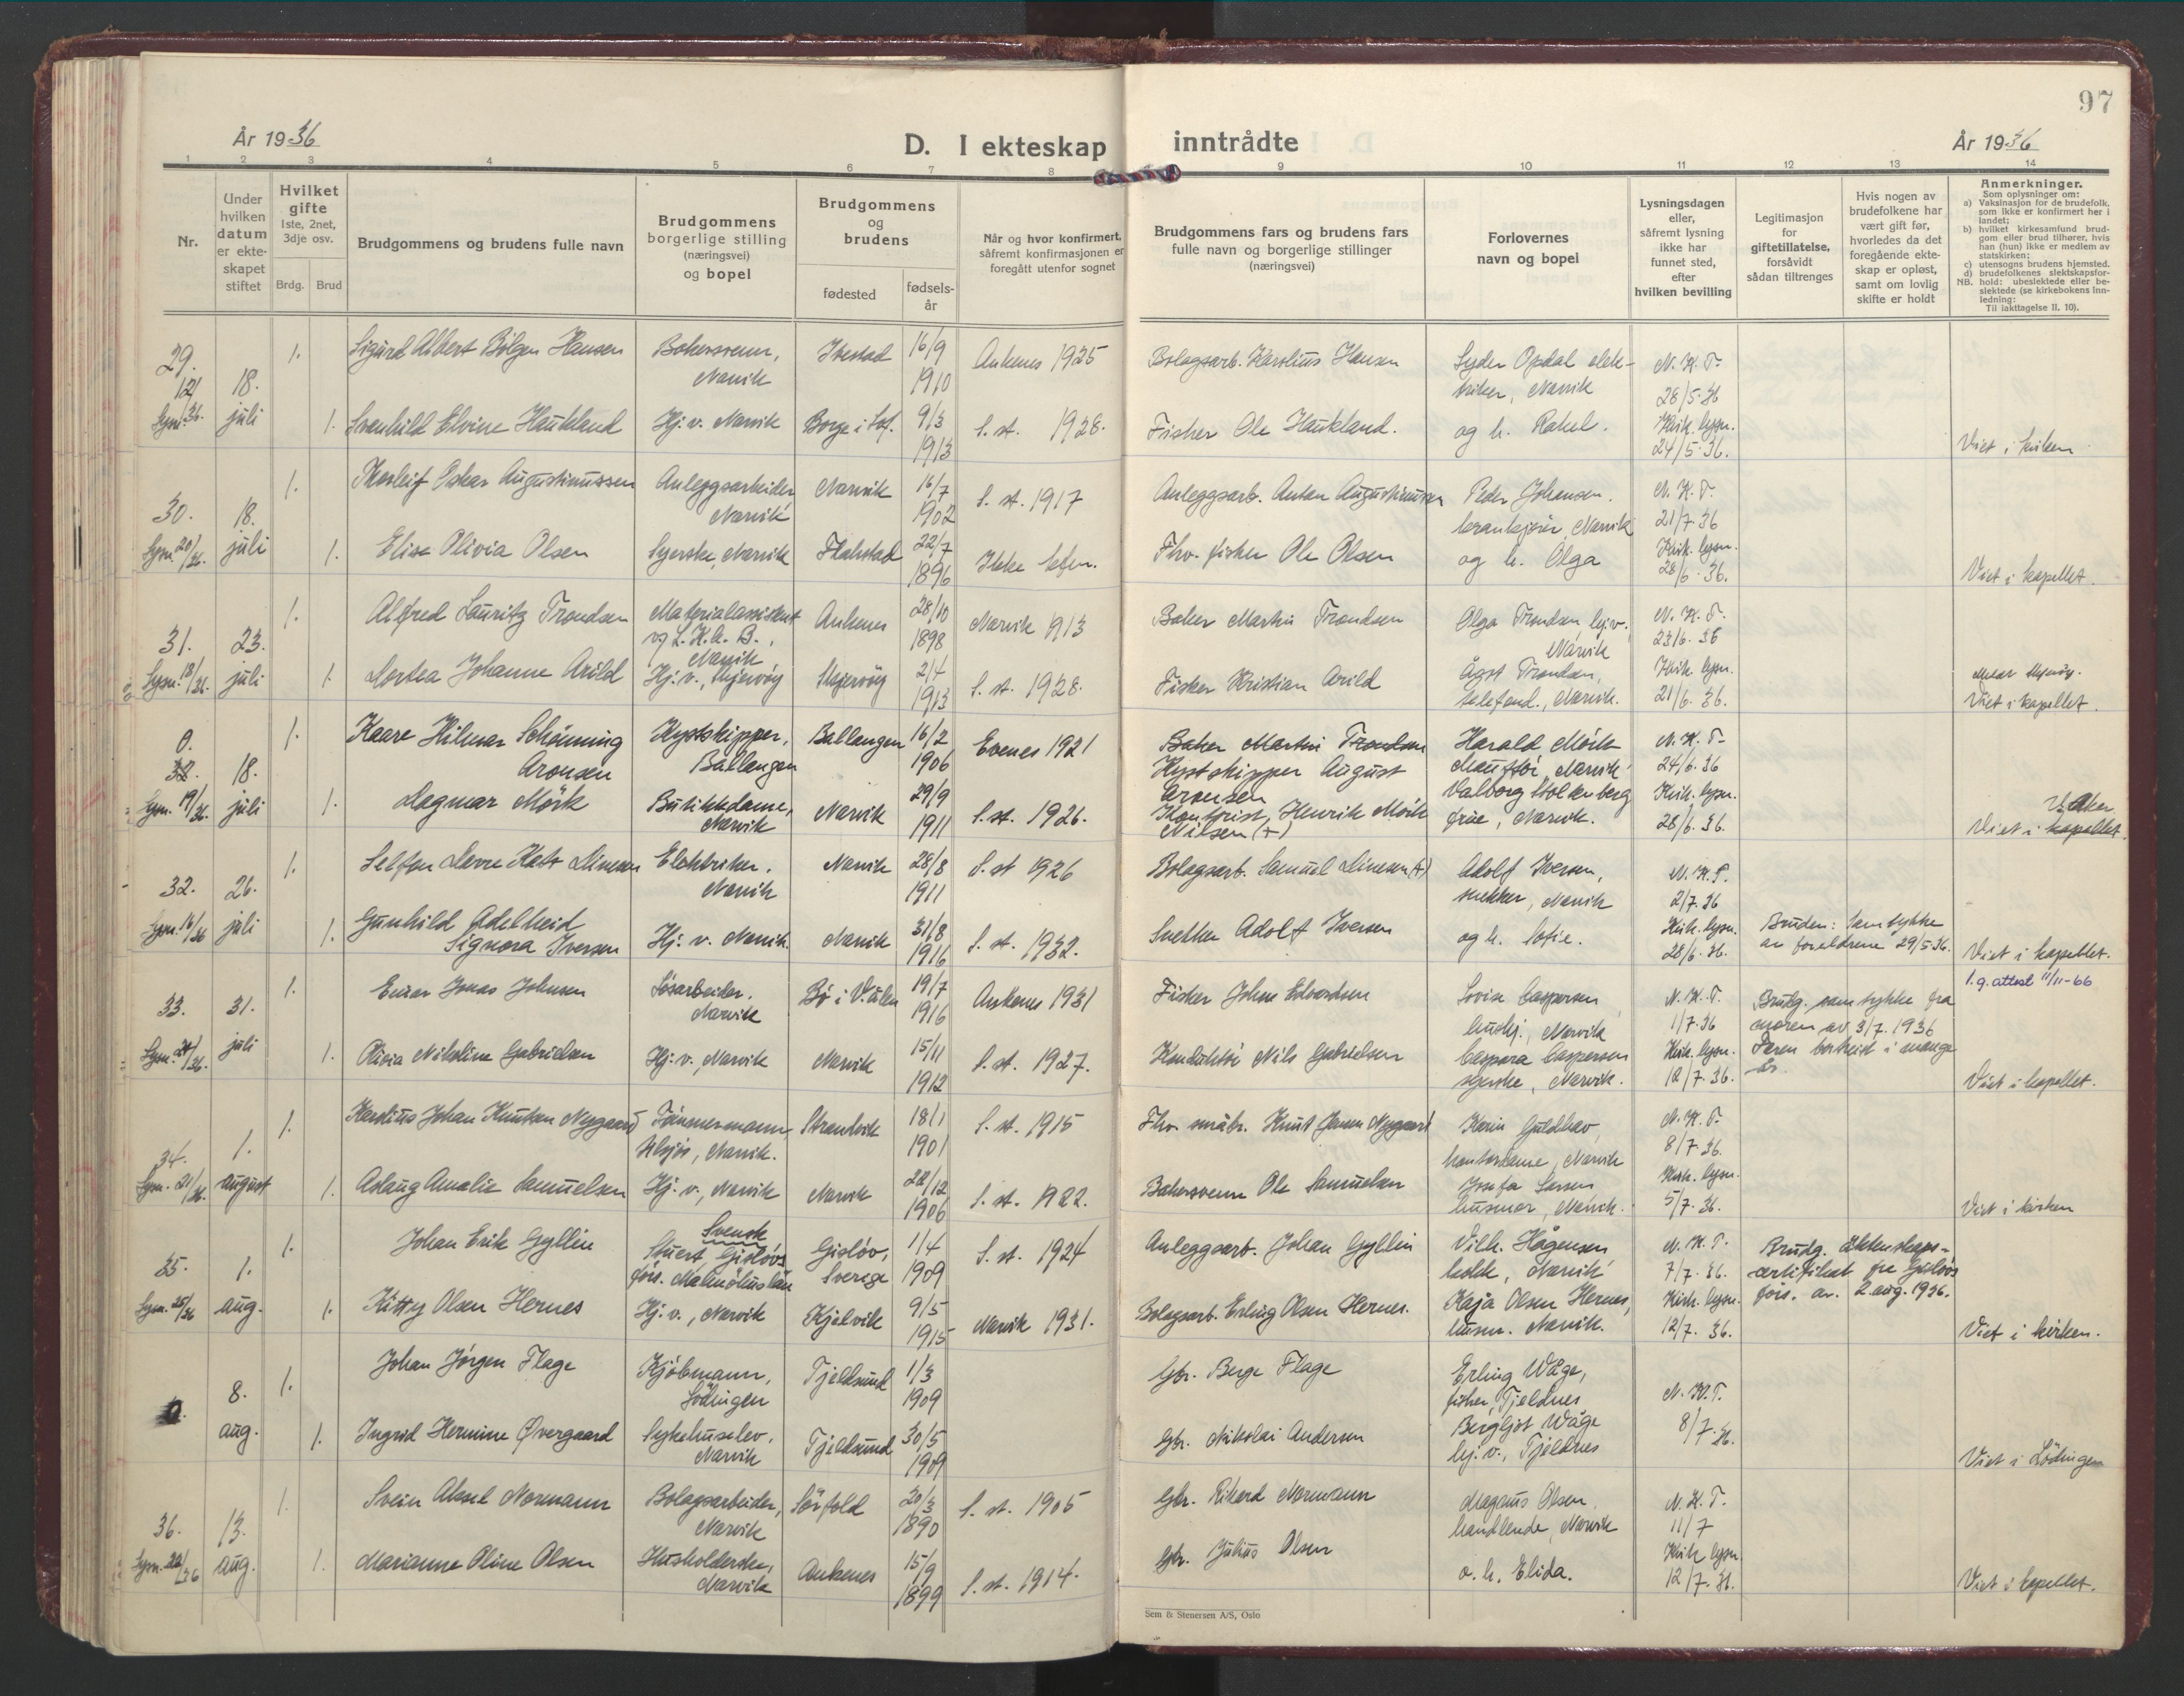 97
År 1936
D. I ekteskap inntrådte
År 1936
1 2 3 4 5 6 7 8 9 10 11 12 13 14
Nr.
Under hvilken datum er ekteskapet stiftet
Hvilket gifte
1ste, 2net, 3dje osv.
Brdg. Brud
Brudgommens og brudens fulle navn
Brudgommens borgerlige stilling (næringsvei) og bopel
Brudgommens og brudens
fødested
fødselsår
Når og hvor konfirmert, såfremt konfirmasjonen er foregått utenfor sognet
Brudgommens fars og brudens fars fulle navn og borgerlige stillinger (næringsvei)
Forlovernes navn og bopel
Lysningsdagen eller, såfremt lysning ikke har funnet sted, efter hvilken bevilling
Legitimasjon for giftetillatelse, forsåvidt sådan tiltrenges
Hvis nogen av brudefolkene har vært gift før, hvorledes da det foregående ekteskap er opløst, samt om lovlig skifte er holdt
Anmerkninger.
Som oplysninger om:
a) Vaksinasjon for de brudefolk, som ikke er konfirmert her i landet;
b) hvilket kirkesamfund brudgom eller brud tilhører, hvis han (hun) ikke er medlem av statskirken;
c) utensogns brudens hjemsted.
d) brudefolkenes slektskapsforhold: ubeslektede eller beslektede (se kirkebokens Innledning:
NB. Til iakttagelse II. 10).
29. 18. juli
1. Sigurd Albert Bölgen Hansen Bakersvenn, Narvik Ibestad 16/9 1910 Ankenes 1925 Bolagsarb. Karolius Hansen Opdal elektriker, Narvik N.K.T. 28/5-36
1. Svanhild Elvine Haukland Hj. v. Narvik Borge i Lof. 9/3 1913 S. st. 1928. Fisker Ole Haukland. og h. Rakel. Kirk. lysn. 24/5-36. Viet i kirken
30. 18. juli Lysn. 20/36.
1. Thorleif Oskar Augustinussen Anleggsarbeider Narvik Narvik 16/7 1902 S. st. 1917 Anleggsarb. Anton Augustinussen Peder Johansen. Narvik N.K.T. 21/7-36
1. Elise Olivia Olsen Syerske, Narvik Flakstad 22/7 1896 Ikke kfm. Fhv. fisker Ole Olsen og h. Olga Kirk. lysn. 28/6-36. Viet i kapellet.
31. 23. juli Lysn. 18/36.
1. Alfred Lauritz Trondsen Materialassistent v/ L.K.A.B., Narvik Ankenes 28/10 1898 Narvik 1913 Baker Martin Trondsen Olga Trondsen hj.v., Narvik N.K.T. 23/6-36
1. Dortea Johanne Arild Hj. v., Skjervöy Skjervöy 2/4 1913 S. st. 1928. Fisker Kristian Arild Ågot Trondsen, telefond., Narvik. Kirk. lysn. 21/6-36. Viet i kapellet.
0. 32. 18. juli Lysn. 19/36.
1. Kaare Hilmar Schönning Aronsen Kystskipper, Ballangen Ballangen 16/2 1906 Evenes 1921 Baker Martin Trondsen Kystskipper August Aronsen Harald Mörk Narvik N.K.T. 24/6-36
1. Dagmar Mörk Butikkdame, Narvik Narvik 29/9 1911 S. st. 1926. Kontorist Henrik Mörk Nilsen (+) Valborg Stoltenberg frue, Narvik. Kirk. lysn. 28/6-36. Viet i kapellet.
32. 26. juli Lysn. 16/36
1. Elektriker, Narvik Narvik 28/8 1911 S. st 1926 Bolagsarb. Samuel (+) Adolf Iversen, snekker, Narvik N.K.T. 2/7-36
1. Gunhild Adelheid Signora Iversen Hj. v. Narvik. Narvik 31/8 1916 S. st. 1932. Snekker Adolf Iversen og h. Sofie. Kirk. lysn. 28/6-36. Bruden: Samtykke av foreldrene 29/5-36. Viet i kapellet.
33. 31. juli
1. Einar Jonas Johnsen Løsarbeider. Narvik Bö i V.ålen 19/7 1916 Ankenes 1931 Fisker Johne Edvardsen Lovise Caspersen hushj., Narvik N.K.T. 1/7-36 Brudg. samtykke fra moren av 3/7. 1936 Faren bortreist i mange år. l.g. attest 11/11-66
1. Olivia Nikoline Gabrielsen Hj. v., Narvik Narvik 15/11 1912 S. st. 1927. Konduktör Nils Gabrielsen Caspara Caspersen syerske, Narvik. Kirk. lysn. 12/7-36. Viet i kapellet.
34. 1. august Lysn. 21/36.
1. Karolius Johan Knutsen Nygaard Tömmermann, Narvik. Strandvik 18/1 1901 S. st. 1915 Fhv. småbr. Knut Jansen Nygaard Karin Guldhav, kontordame, Narvik N.K.T. 8/7-36.
1. Aslaug Amalie Samuelsen Hj. v., Narvik Narvik 22/12 1906 S. st. 1922. Bakersvenn Ole Samuelsen Josefa Larsen husmor, Narvik. Kirk. lysn. 5/7-36. Viet i kirken
35. 1. aug. Lysn. 25/36
1. Johan Erik Gyllin Svensk Stuert, Gislövs förs. Malmöhus län Gislöv, Sverige 1/4 1909 S. st. 1924 Anleggsarb. Johan Gyllin Vilh. Hågensen, kokk, Narvik N.K.T. 7/7-36. Brudg. äktenskapscertifikat fra Gislövs förs. av 2. aug. 1936.
1. Kitty Olsen Hernes Hj. v., Narvik Kjelvik 9/5 1915 Narvik 1931. Bolagsarb. Erling Olsen Hernes. Kaja Olsen Hernes, husm. Narvik. Kirk. lysn. 12/7-36. Viet i kirken.
0. 8. aug.
1. Johan Jörgen Flage Kjöbmann, Lödingen Tjeldsund 1/3 1909 Gbr. Berge Flage Erling Våge, fisker, Tjeldnes N.K.T. 8/7-36.
1. Ingrid Hermine Øvergaard Sykehuselev, Narvik Tjeldsund 30/5 1909 Gbr. Nikolai Andersen Bergljot Våge hj. v., Tjeldnes Viet i Lödingen
36. 13. aug.
1. Svein Aksel Normann Bolagsarbeider, Narvik Sörfold 20/3 1890 S. st. 1905 Gbr. Rikard Normann Magnus Olsen, handlende, Narvik N.K.T. 11/7
1. Marianne Oline Olsen Husholderske, Narvik Ankenes 15/9 1899 S. st. 1914. Gbr. Julius Olsen o. h. Elida. Kirk lysn. 12/7-36. Viet i kapellet.
Sem & Stenersen A/S, Oslo